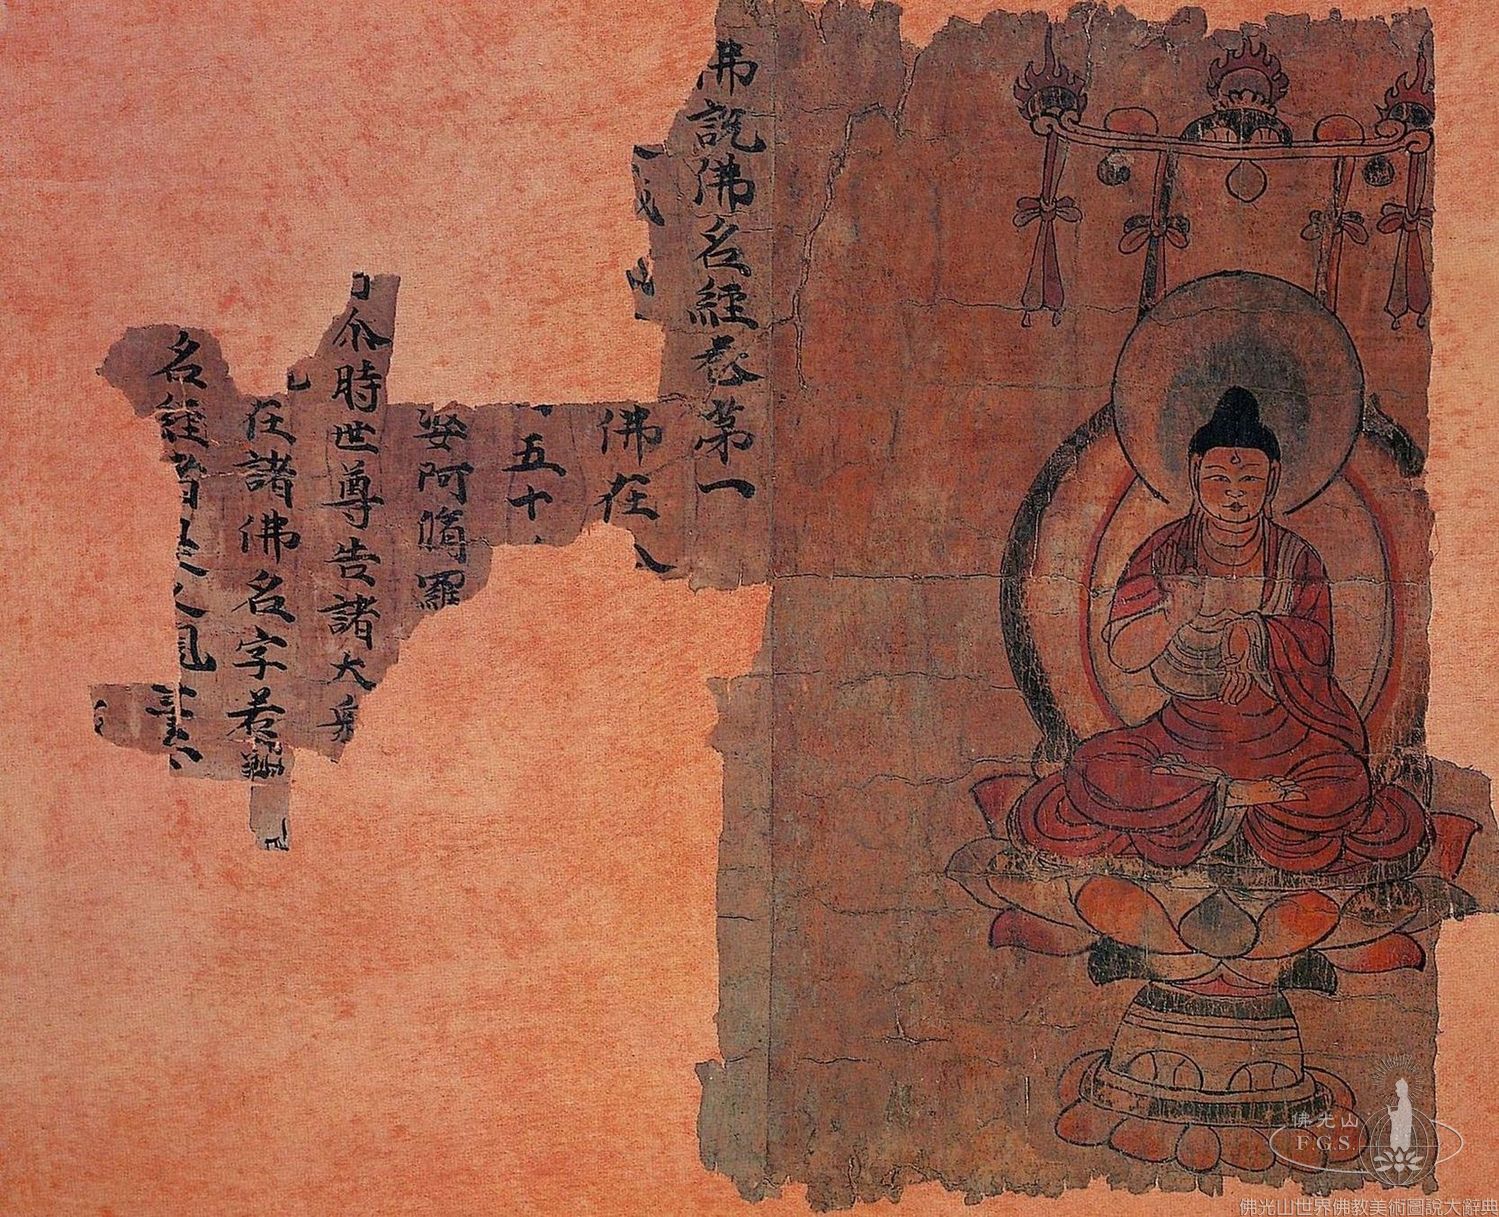 佛說佛名經卷第一
佛在
五十
婆阿脩羅
尒時世尊告諸大
在諸佛名字若
名經
佛光山
F.G.S.
佛光山世界佛教美術圖說大辭典